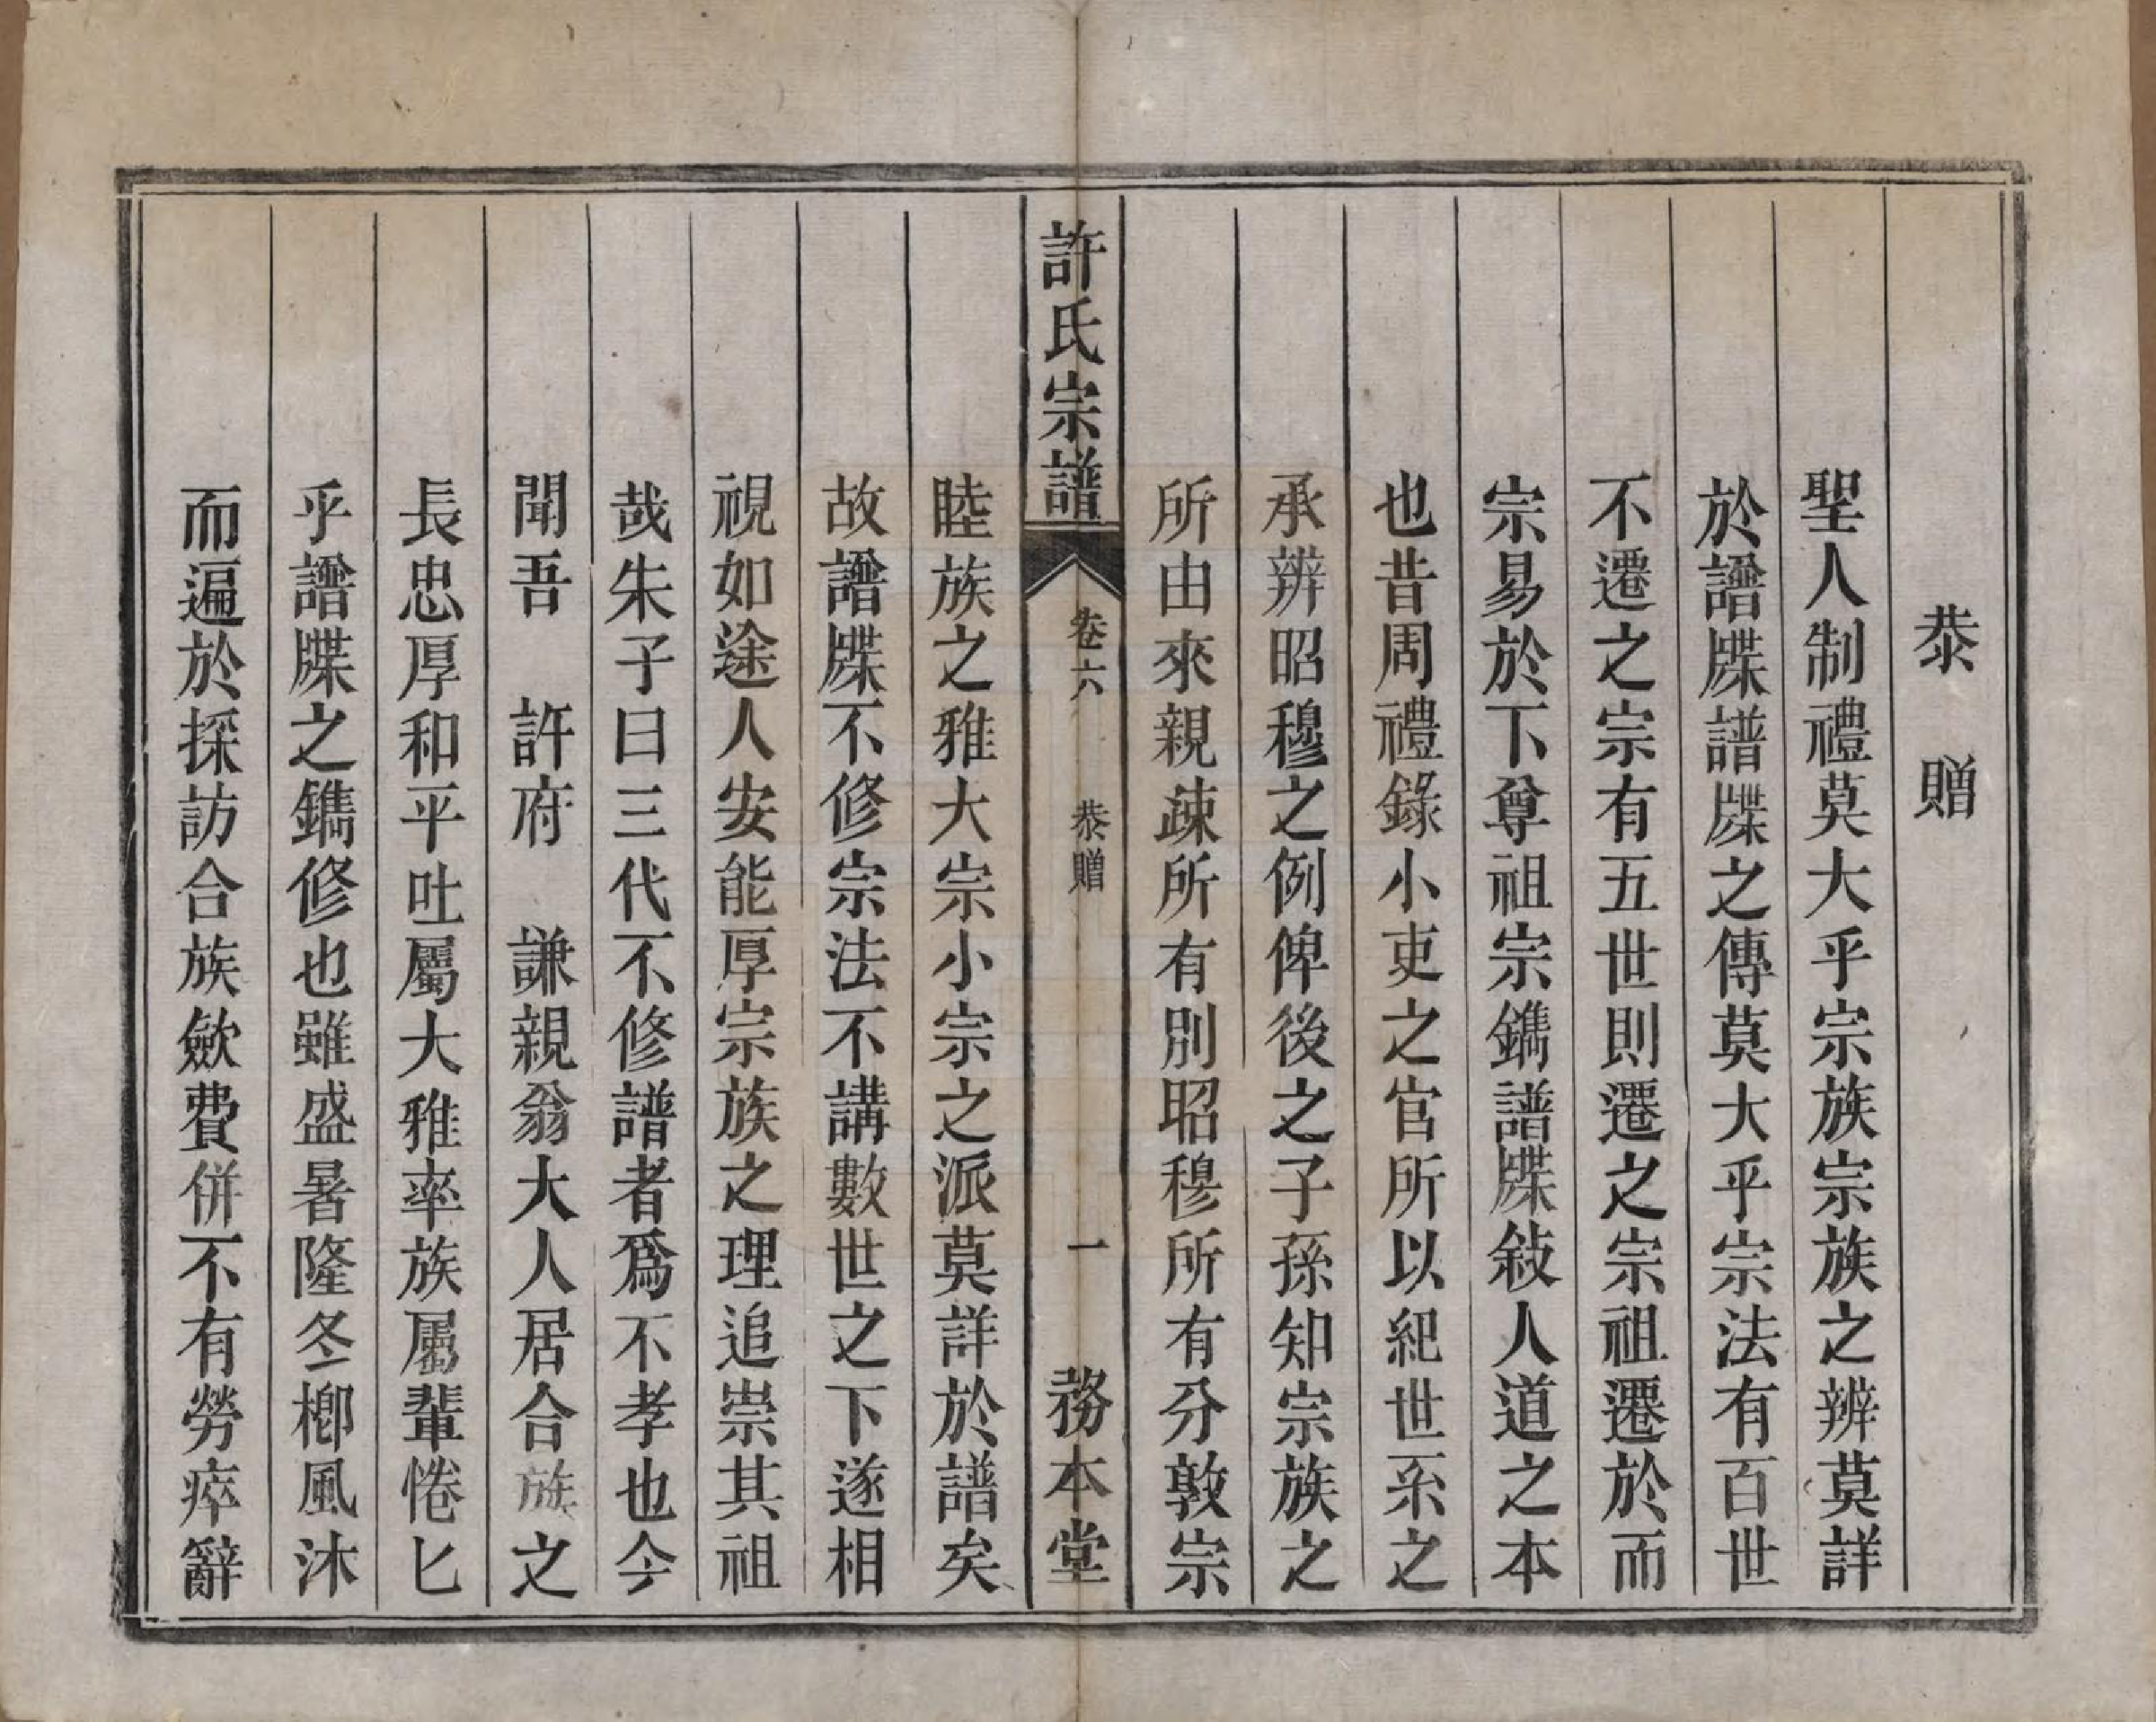 恭贈
聖人制禮莫大乎宗族宗族之辨莫詳
於譜牒譜牒之傳莫大乎宗法有百世
不遷之宗有五世則遷之宗祖遷於而
宗易於下尊祖宗鐫譜牒敍人道之本
也昔周禮錄小吏之官所以紀世系之
承辨昭穆之例俾後之子孫知宗族之
所由來親疎所有別昭穆所有分敦宗
許氏宗譜 卷六 恭贈 一 務本堂
睦族之雅大宗小宗之派莫詳於譜矣
故譜牒不修宗法不講數世之下遂相
視如途人安能厚宗族之理追崇其祖
哉朱子曰三代不修譜者爲不孝也今
聞吾 許府 謙親翁大人居合族之
長忠厚和平吐屬大雅率族屬輩惓匕
乎譜牒之鐫修也雖盛暑隆冬櫛風沐
而遍於採訪合族歛費併不有勞瘁辭